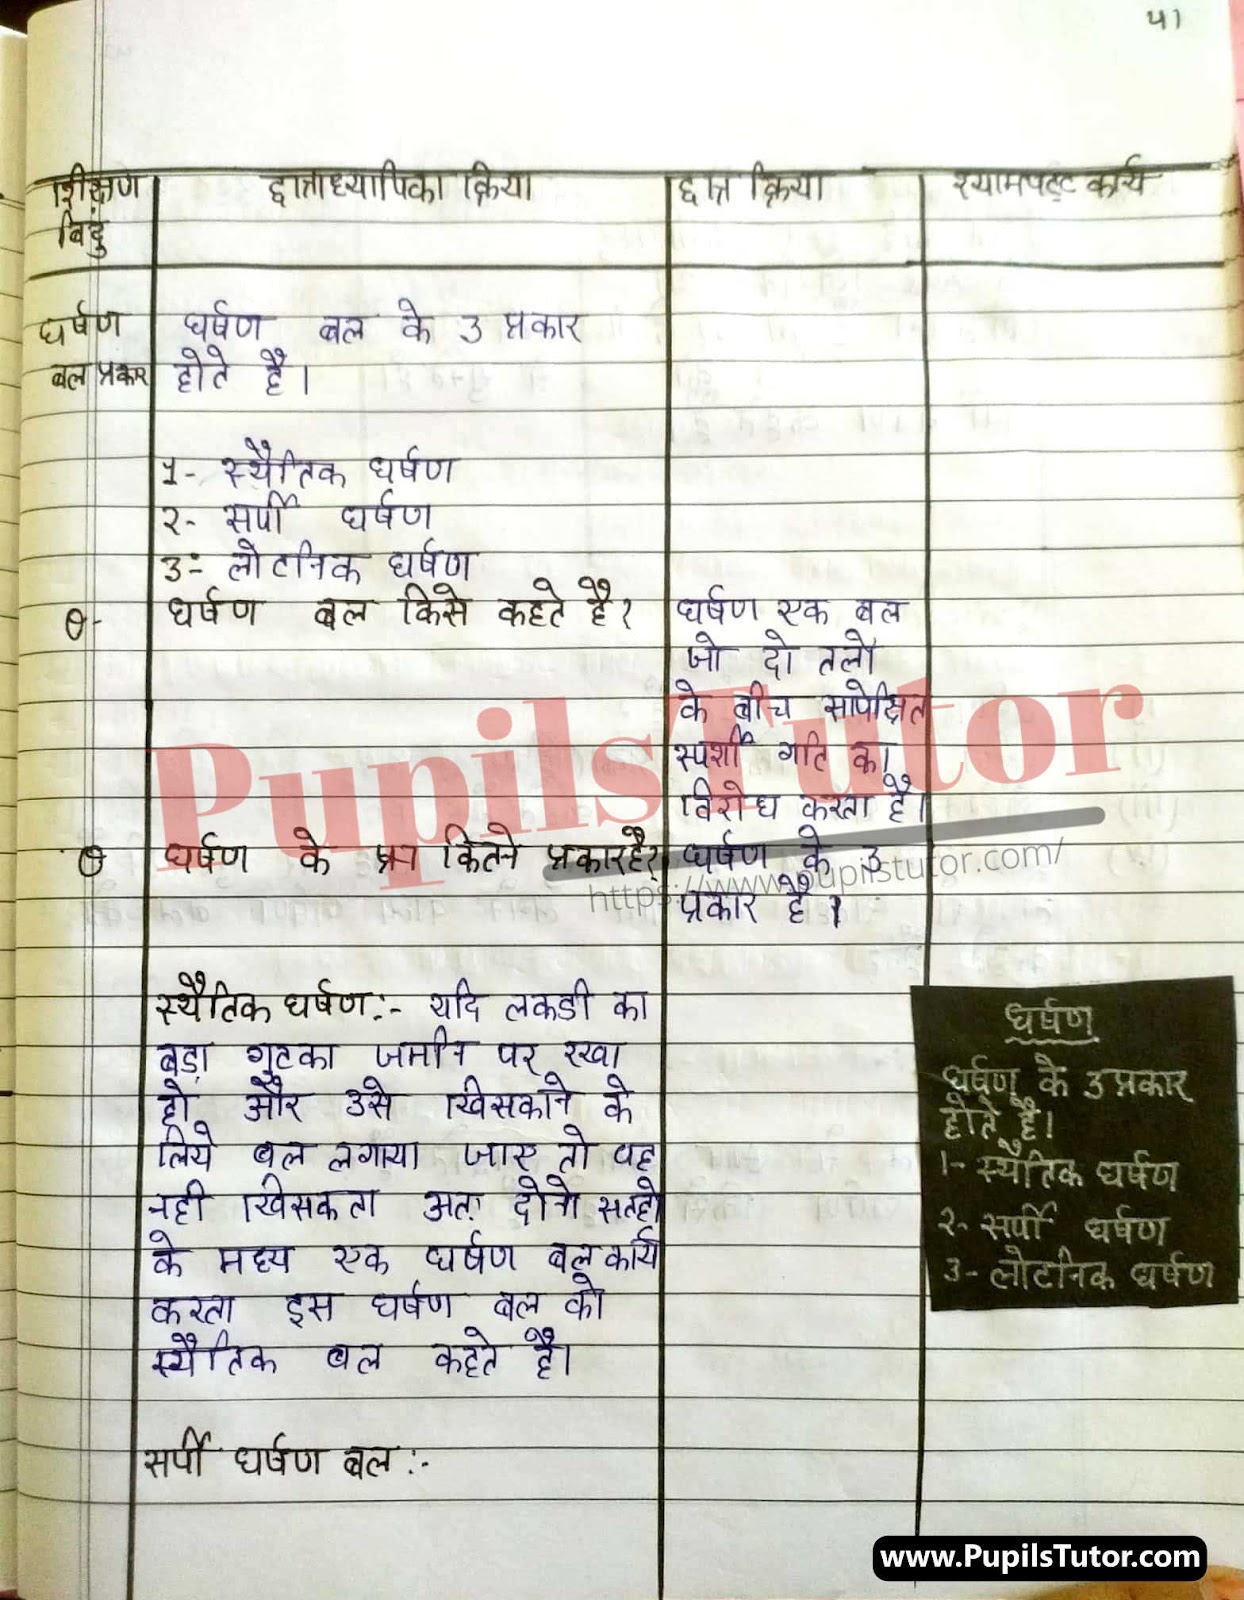 41
शिक्षण
बिंदु
छात्राध्यापिका क्रिया
छात्र क्रिया
श्यामपट्ट कार्य
घर्षण
बल प्रकार
घर्षण बल के 3 प्रकार
होते है।
1- स्थैतिक घर्षण
2- सर्पी घर्षण
3- लोटनिक घर्षण
θ- घर्षण बल किसे कहते है?
घर्षण एक बल
जो दो तलो
के बीच सापेक्षित
स्पर्शी गति का
विरोध करता है।
θ घर्षण के कितने प्रकार है?
घर्षण के 3
प्रकार है।
स्थैतिक घर्षण:- यदि लकडी का
बड़ा गुटका जमीन पर रखा
हो और उसे खिसकाने के
लिये बल लगाया जाए तो वह
नही खिसकता अत: दोनो सतहो
के मध्य एक घर्षण बल कार्य
करता इस घर्षण बल को
स्थैतिक बल कहते है।
सर्पी घर्षण बल :-
घर्षण
घर्षण के 3 प्रकार
होते है।
1- स्थैतिक घर्षण
2- सर्पी घर्षण
3- लोटनिक घर्षण
PupilsTutor
https://www.pupilstutor.com/
www.PupilsTutor.com